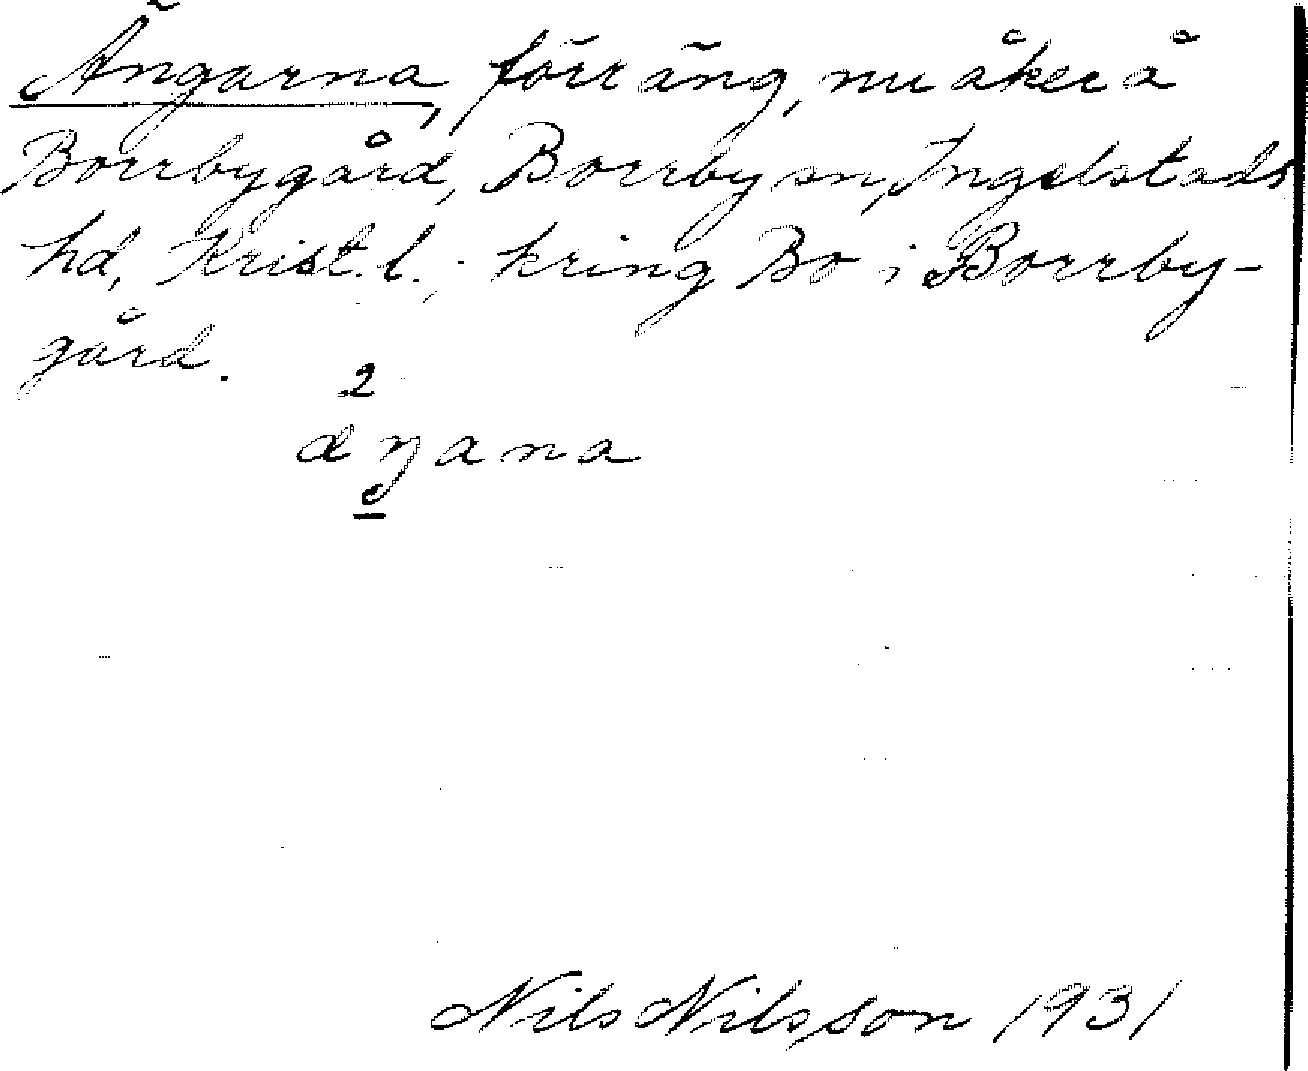 Ängarna, förr äng, nu åker å
Borrbygård, Borrby sn, Ingelstads
hd, Krist. l.; kring Bo i Borrby-
gård.
2
Nils Nilsson 1931